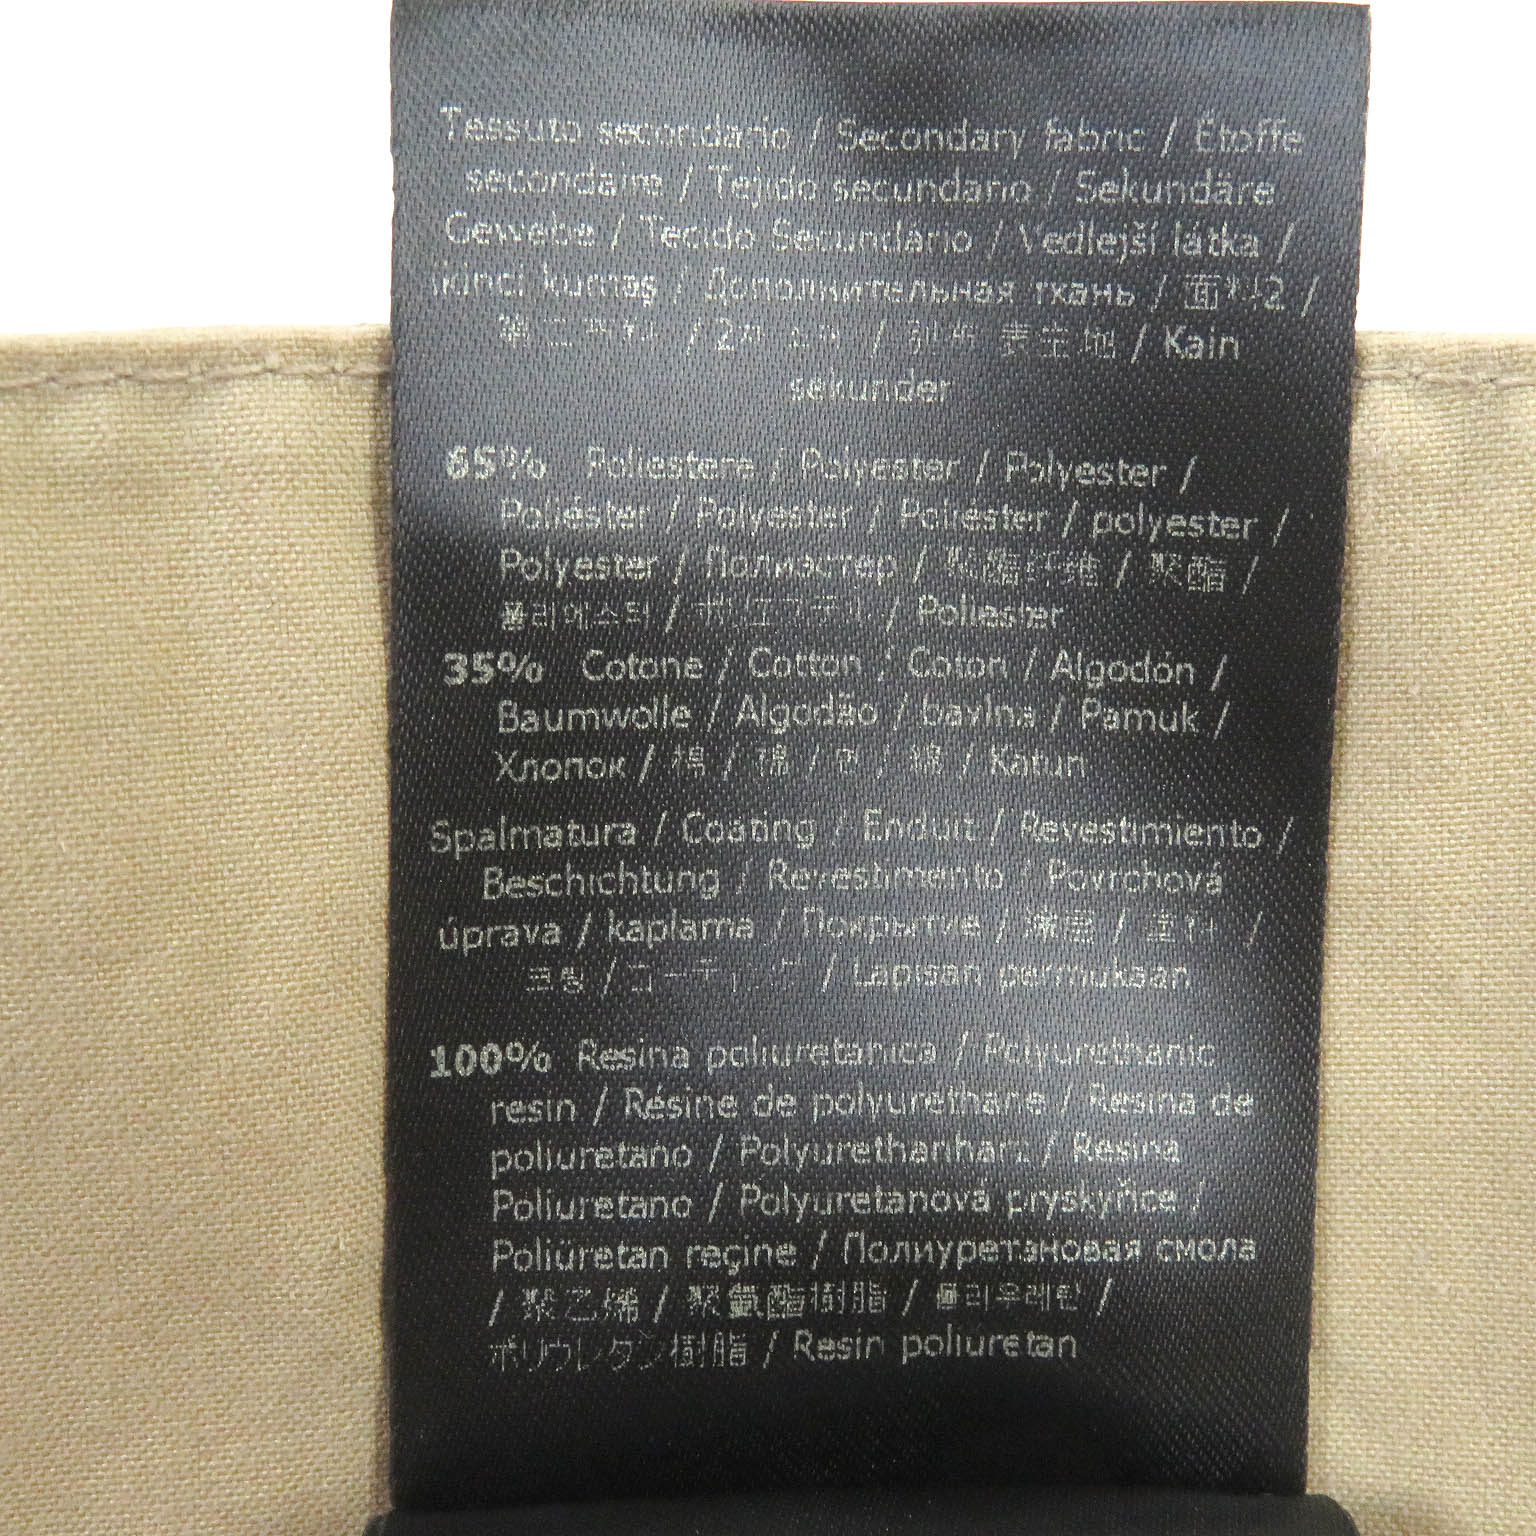 Tessuto secondario / Secondary fabric / Étoffe
secondaire / Tejido secundario / Sekundäre
Gewebe / Tecido Secundario / Vedlejší látka /
ikinci kumaş / Дополнительная ткань / 面料2 /
/ 2 / 表生地 / Kain
sekunder
65% Poliestere / Polyester / Polyester /
Poliéster / Polyester / Poliéster / polyester /
Polyester / Полиэстер / 聚酯纤维 / 聚酯 /
폴리에스터 / ポリエステル / Poliester
35% Cotone / Cotton / Coton / Algodón /
Baumwolle / Algodão / bavlna / Pamuk /
Хлопок / 棉 / 棉 / 면 / 綿 / Katun
Spalmatura / Coating / Enduit / Revestimiento /
Beschichtung / Revestimento / Povrchová
úprava / kaplama / Покрытие / 涂层 / /
코팅 / コーティング / Lapisan permukaan
100% Resina poliuretanica / Polyurethanic
resin / Résine de polyurethane / Resina de
poliuretano / Polyurethanharz / Resina
Poliuretano / Polyuretanová pryskyřice /
Poliüretan reçine / Полиуретановая смола
/ 聚乙烯 / 聚氨酯樹脂 / 폴리우레탄 /
ポリウレタン樹脂 / Resin poliuretan